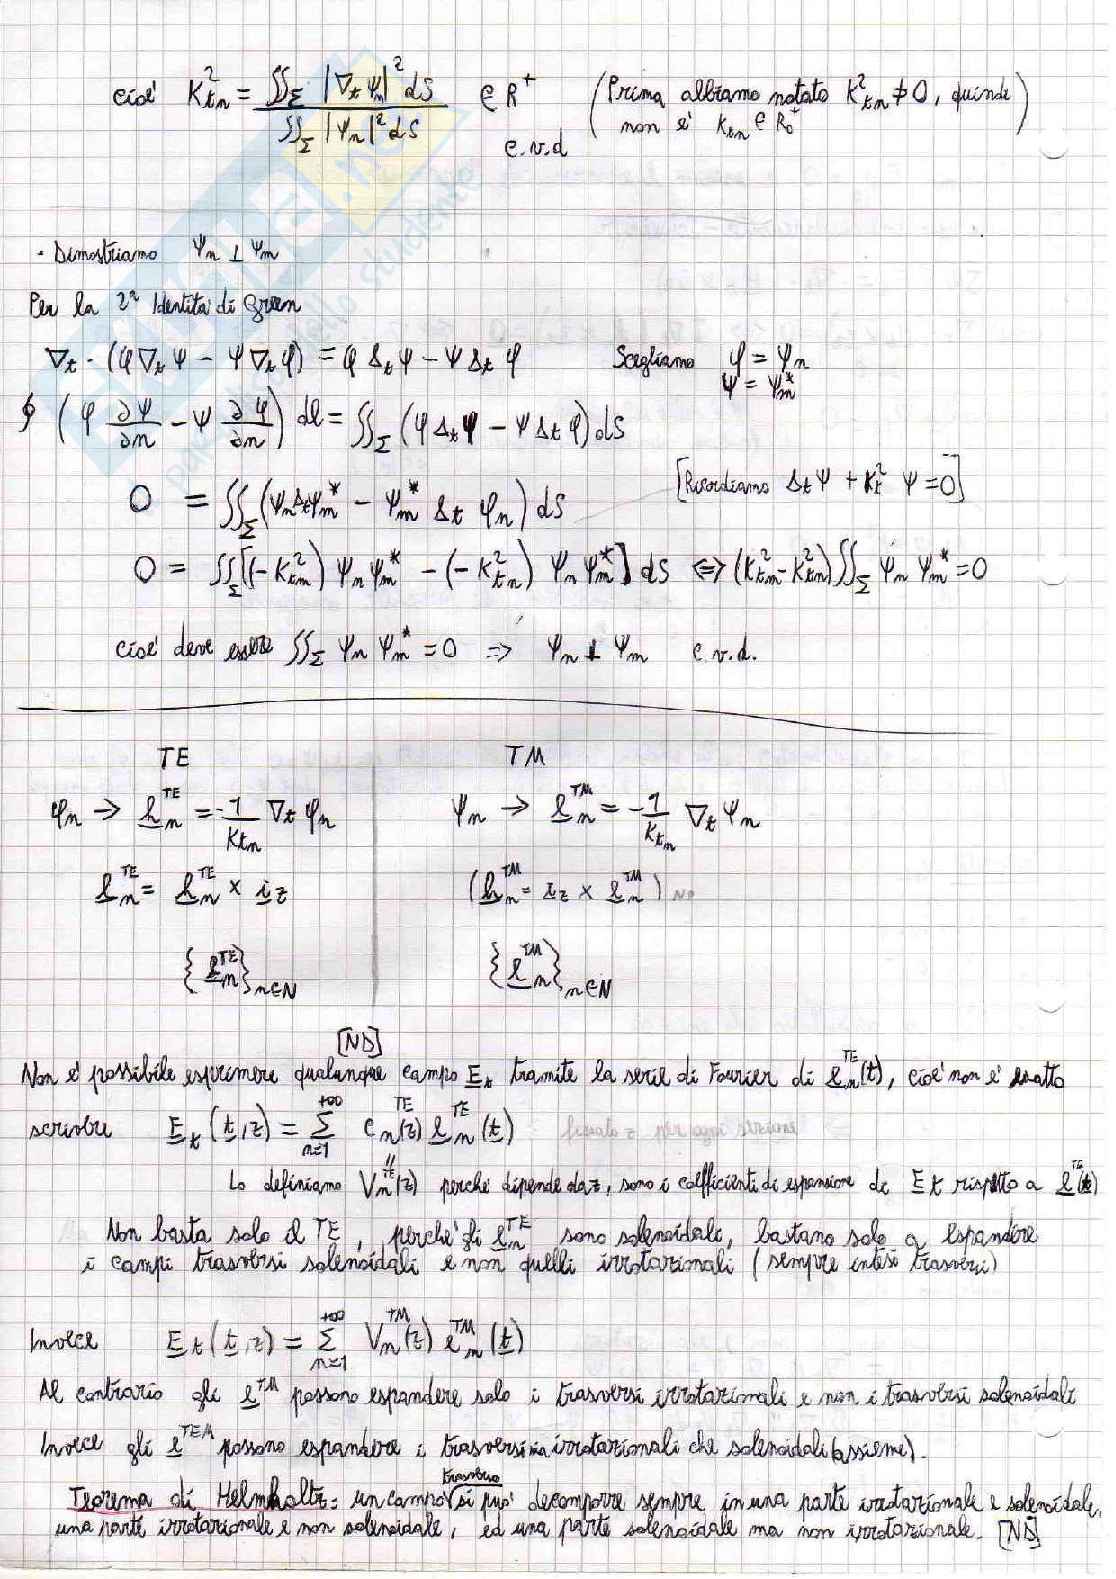 cioè K²tn = ∬Σ |∇t Ψn|² dS / ∬Σ |Ψn|² dS ∈ R⁺ (Prima abbiamo notato K²tn ≠ 0, quindi
non è Ktn ∈ R₀⁺)
c.v.d
· Dimostriamo Ψn ⊥ Ψm
Per la 2ª Identità di Green
∇t · (φ ∇t Ψ − Ψ ∇t φ) = φ Δt Ψ − Ψ Δt φ Scegliamo φ = Ψn
Ψ = Ψm*
∮ (φ ∂Ψ/∂n − Ψ ∂φ/∂n) dl = ∬Σ (φ Δt Ψ − Ψ Δt φ) dS
0 = ∬Σ (Ψn Δt Ψm* − Ψm* Δt φn) dS [Ricordiamo Δt Ψ + Kt² Ψ = 0]
0 = ∬Σ [(−K²tm) Ψn Ψm* − (−K²tn) Ψn Ψm*] dS ⇔ (K²tm − K²tn) ∬Σ Ψn Ψm* = 0
cioè deve essere ∬Σ Ψn Ψm* = 0 ⇒ Ψn ⊥ Ψm c.v.d.
TE TM
φn → hn^TE = −1/Ktn ∇t φn Ψn → en^TM = −1/Ktn ∇t Ψn
en^TE = hn^TE × iz (hn^TM = iz × en^TM) NO
{en^TE}n∈N {en^TM}n∈N
[ND]
Non è possibile esprimere qualunque campo Et tramite la serie di Fourier di en^TE(t), cioè non è esatto
scrivere Et(t,z) = Σn=1^+∞ cn^TE(z) en^TE(t) fissato z per ogni sezione
Lo definiamo Vn^TE(z) perché dipende da z, sono i coefficienti di espansione di Et rispetto a e^TE(t)
Non basta solo il TE, perché gli en^TE sono solenoidali, bastano solo a espandere
i campi trasversi solenoidali e non quelli irrotazionali (sempre intesi trasversi)
Invece Et(t,z) = Σn=1^+∞ Vn^TM(z) en^TM(t)
Al contrario gli e^TM possono espandere solo i trasversi irrotazionali e non i trasversi solenoidali
Invece gli e^TEM possono espandere i trasversi sia irrotazionali che solenoidali (assieme).
Teorema di Helmholtz: un campo trasverso si può decomporre sempre in una parte irrotazionale e solenoidale,
una parte irrotazionale e non solenoidale, ed una parte solenoidale ma non irrotazionale. [ND]